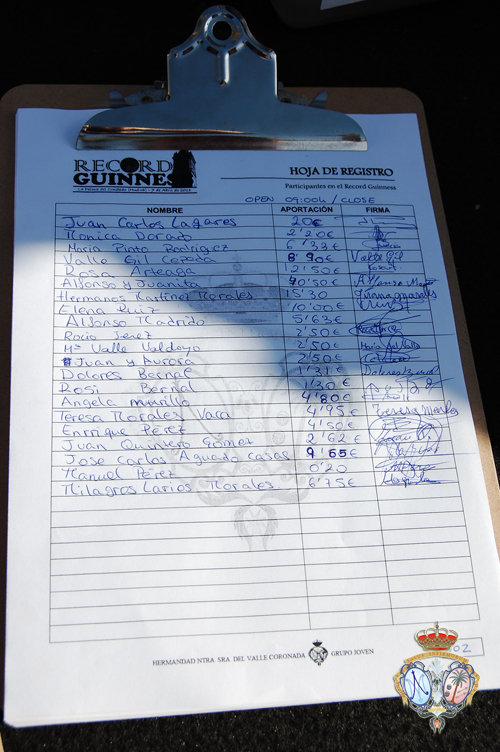 RECORD
GUINNESS
HOJA DE REGISTRO
Participantes en el Record Guinness
OPEN 09:00h / CLOSE
NOMBRE APORTACIÓN FIRMA
Juan Carlos Lagares 20€
Monica Dorado 2'20€
Maria Pinto Rodriguez 6'33€
Valle Gil Cepeda 8'90€ Valle Gil
Rosa Arteaga 2'50€
Alfonso y Juanita 10'50€
Hermanos Martinez Morales 15'30
Elena Ruiz 10'00€
Alfonso Madrido 5'63€
Rocio Jerez 2'50€
Mª Valle Valdayo 2'50€
Juan y Aurora 2'50€
Dolores Bernal 1'31€ Dolores Bernal
Rosi Bernal 1'30€
Angela Murillo 4'80€
Teresa Morales Vaca 4'95€ Teresa Morales
Enrrique Perez 4'50€
Juan Quintero Gómez 2'62€
Jose Carlos Aguado Casas 9'65€
Manuel Pérez 0'20
Milagros Larios Morales 6'75€
HERMANDAD NTRA SRA DEL VALLE CORONADA GRUPO JOVEN
02